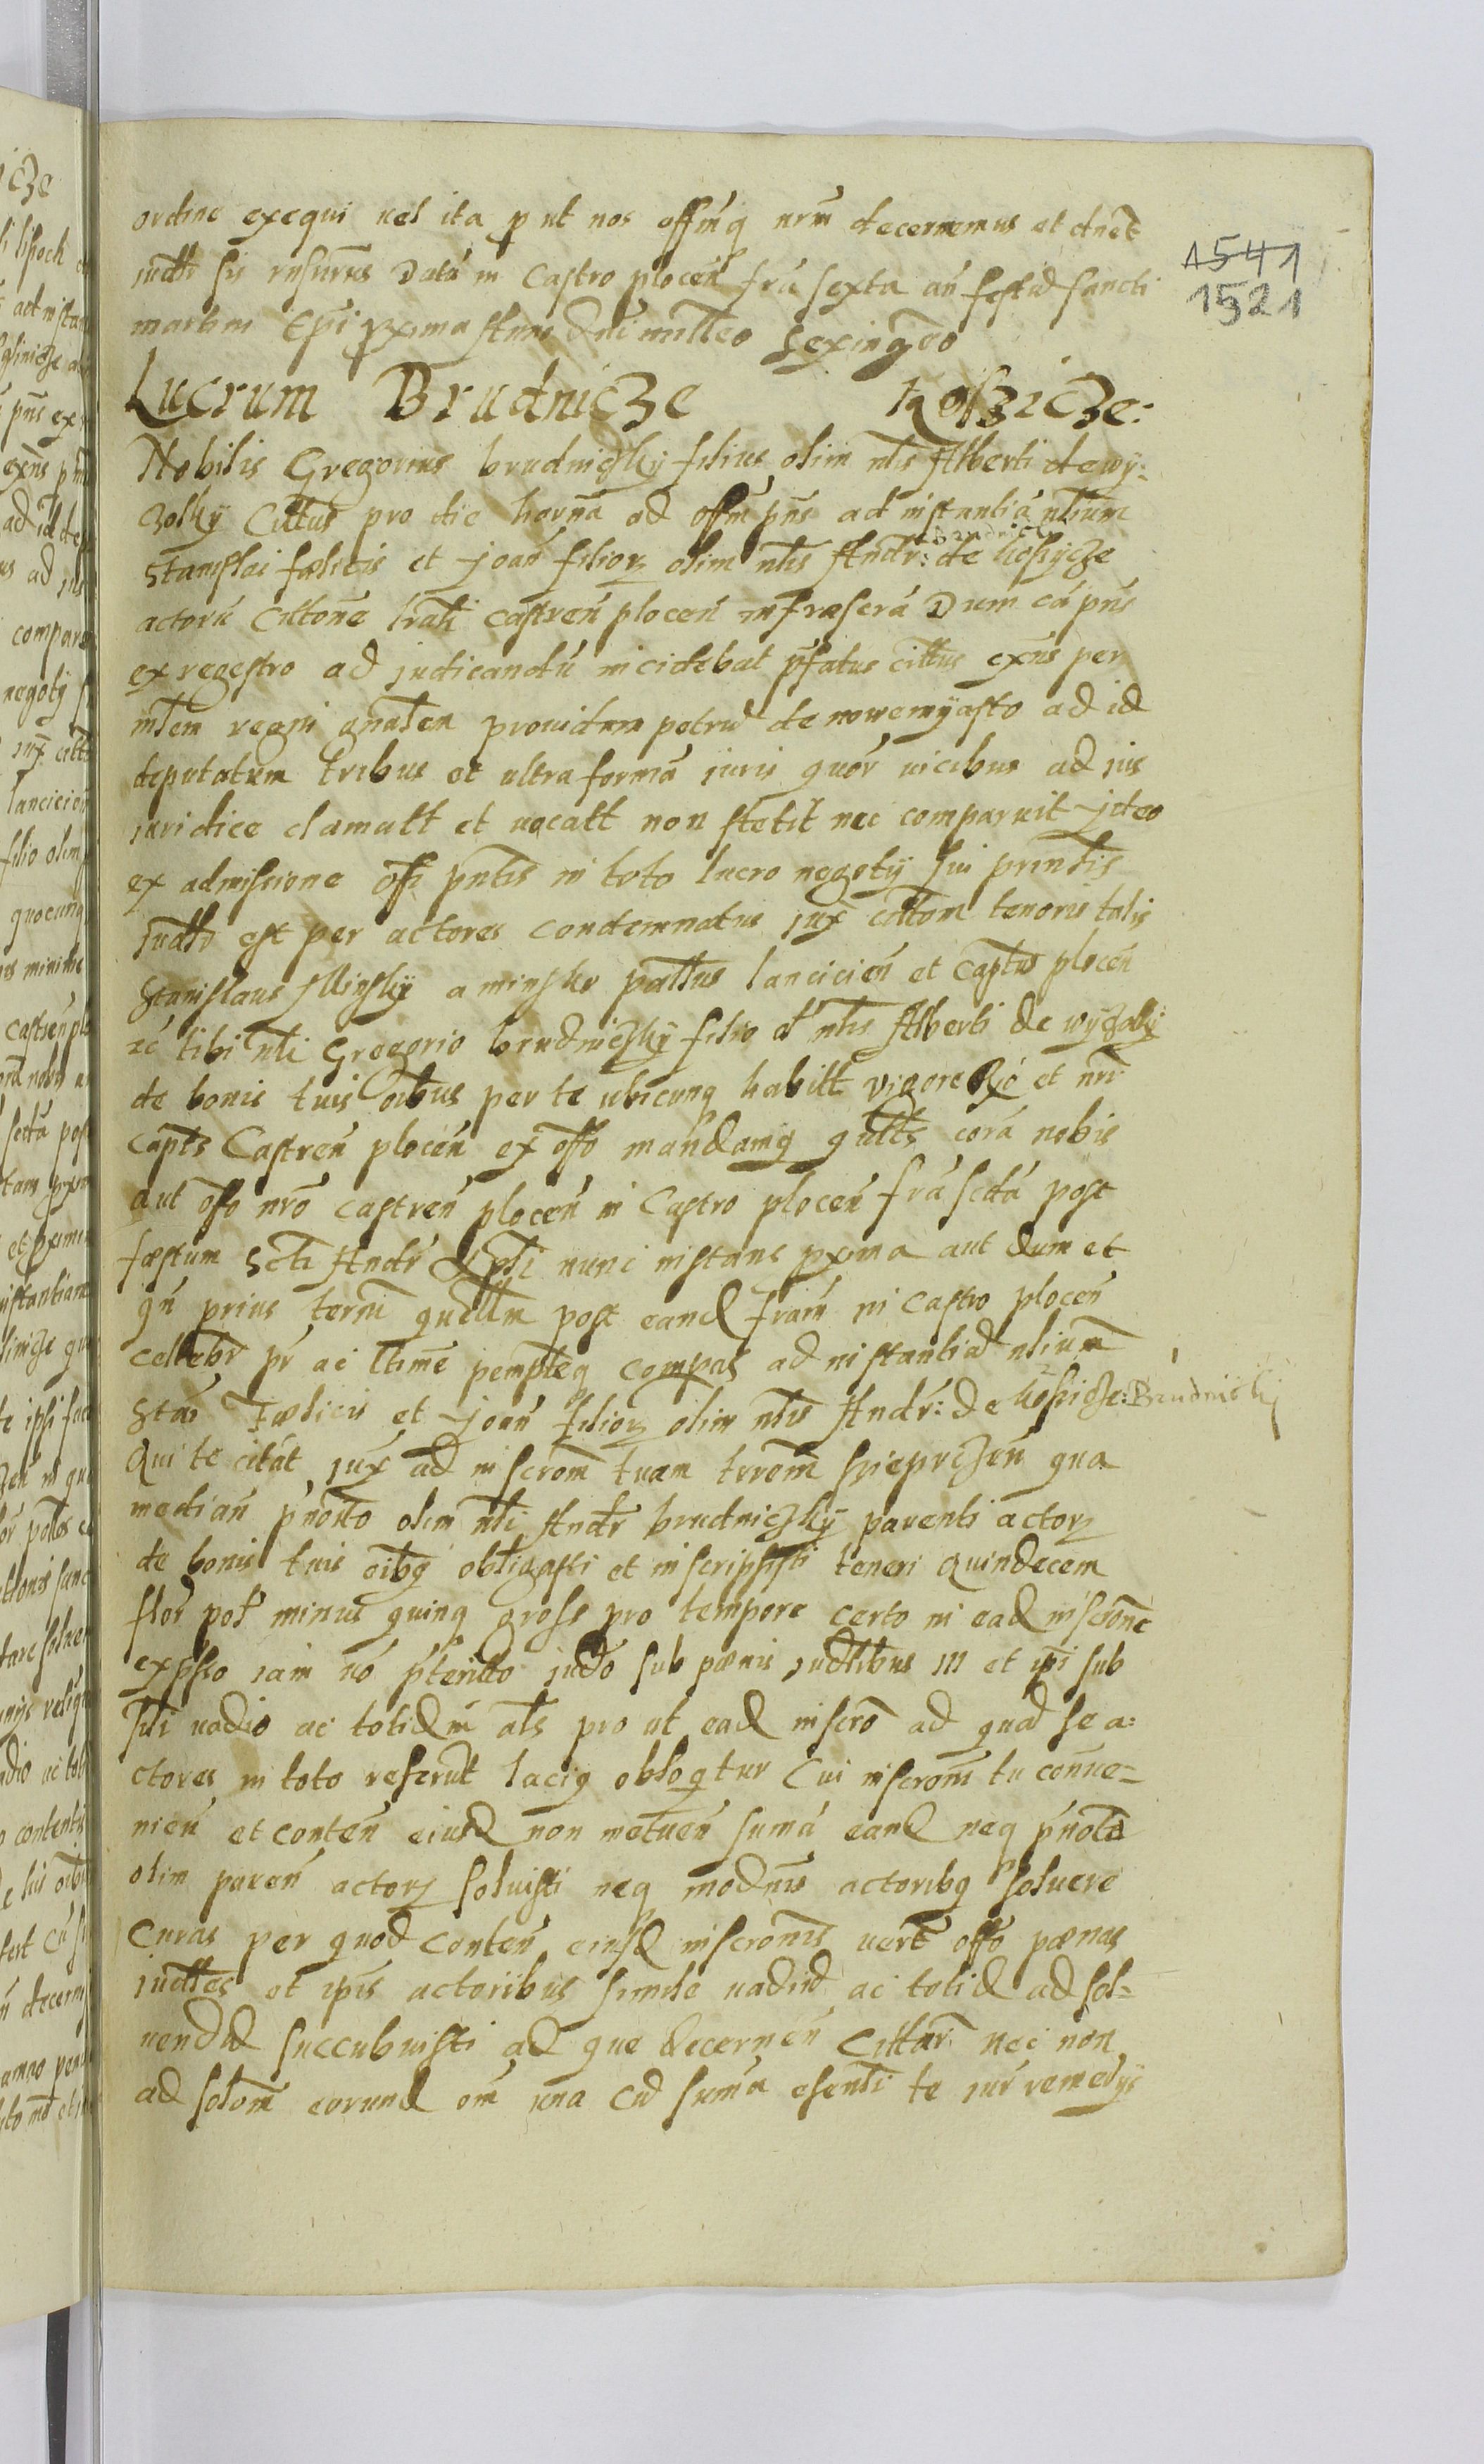 1541
1521
ordine exequi uel ita p ut nos offmq nrm decernemus et dnct
judtr sis rnsurus Datu in Castro plocen fra sexta an festu sancti
martini Epi pxima Anno Dni milleo sexingeo
Lucrum Brudnicze Koszicze:
Nobilis Gregorius brudniczky filius olim nlis Alberti de wy:
zolky Cittus pro die horna ad offm pns ad instantia nlium
Stanislai fælicis et joan filior olim nlis Andr: de koszycze
actoru Cittone lrali castren plocen infrascra Dum ca pns
ex regestro ad judicandu incidebat pfatus cittus exns per
mlem regni gnalem prouidum petru de nowemyasto ad id
deputatum tribus et ultra forma juris quor uicibus ad jus
juridice clamatt et uocatt non stetit nec comparuit jdeo
ex admissione offi pntis in toto lucro negoty sui printis
judtr est per actores condemnatus jux cittom tenoris talis
Stanislaus Minsky a minsko pallus lancicien et Captus plocen
ac tibi nli Gregorio brudniczky filio nlis Alberti de wyzolky
de bonis tuis oibus per te ubicunq habitt vigore Rgo et nri
capts Castren plocen ex offo mandamq qutts cora nobis
aut offo nro castren plocen in Castro plocen fra scda post
fæstum Scti Andr Apli nunc instans pxma aut dum et
qn prius termi quellm post eand fram in castro plocen
cellebr pr ac ltime pempteq compas ad instantiad nlium
Stai Fælicis et joan filior olim nlis Andr: de koszicze: Brudnicki
Qui te citat jux ad inscrom tuam terrem sierpczen qua
median pnotto olim nli Andr brudniczky parenti actor
de bonis tuis oibq obligasti et inscripsisti teneri quindecem
flor pol minus quinq gross pro tempore certo in ead inscrone
expsso iam uo pteritto judo sub pænis judtibus III et ipi sub
sili uadio ac totidm als pro ut ead inscro ad quad se a:
ctores in toto referut laciq obloqtur Cui inscrom tu conue=
nien et conten eiusd non metuen suma eand neq pnota
olim paren actor soluisti neq modnis actoribq soluere
curas per quod conten eiusd inscronis uert offo pænas
iudttes et ipis actoribus simile uadiu ac totid ad sol=
uendu succubuisti ad que decernen cittaris nec non
ad solom eorund om una cu suma esenli te jur remedys